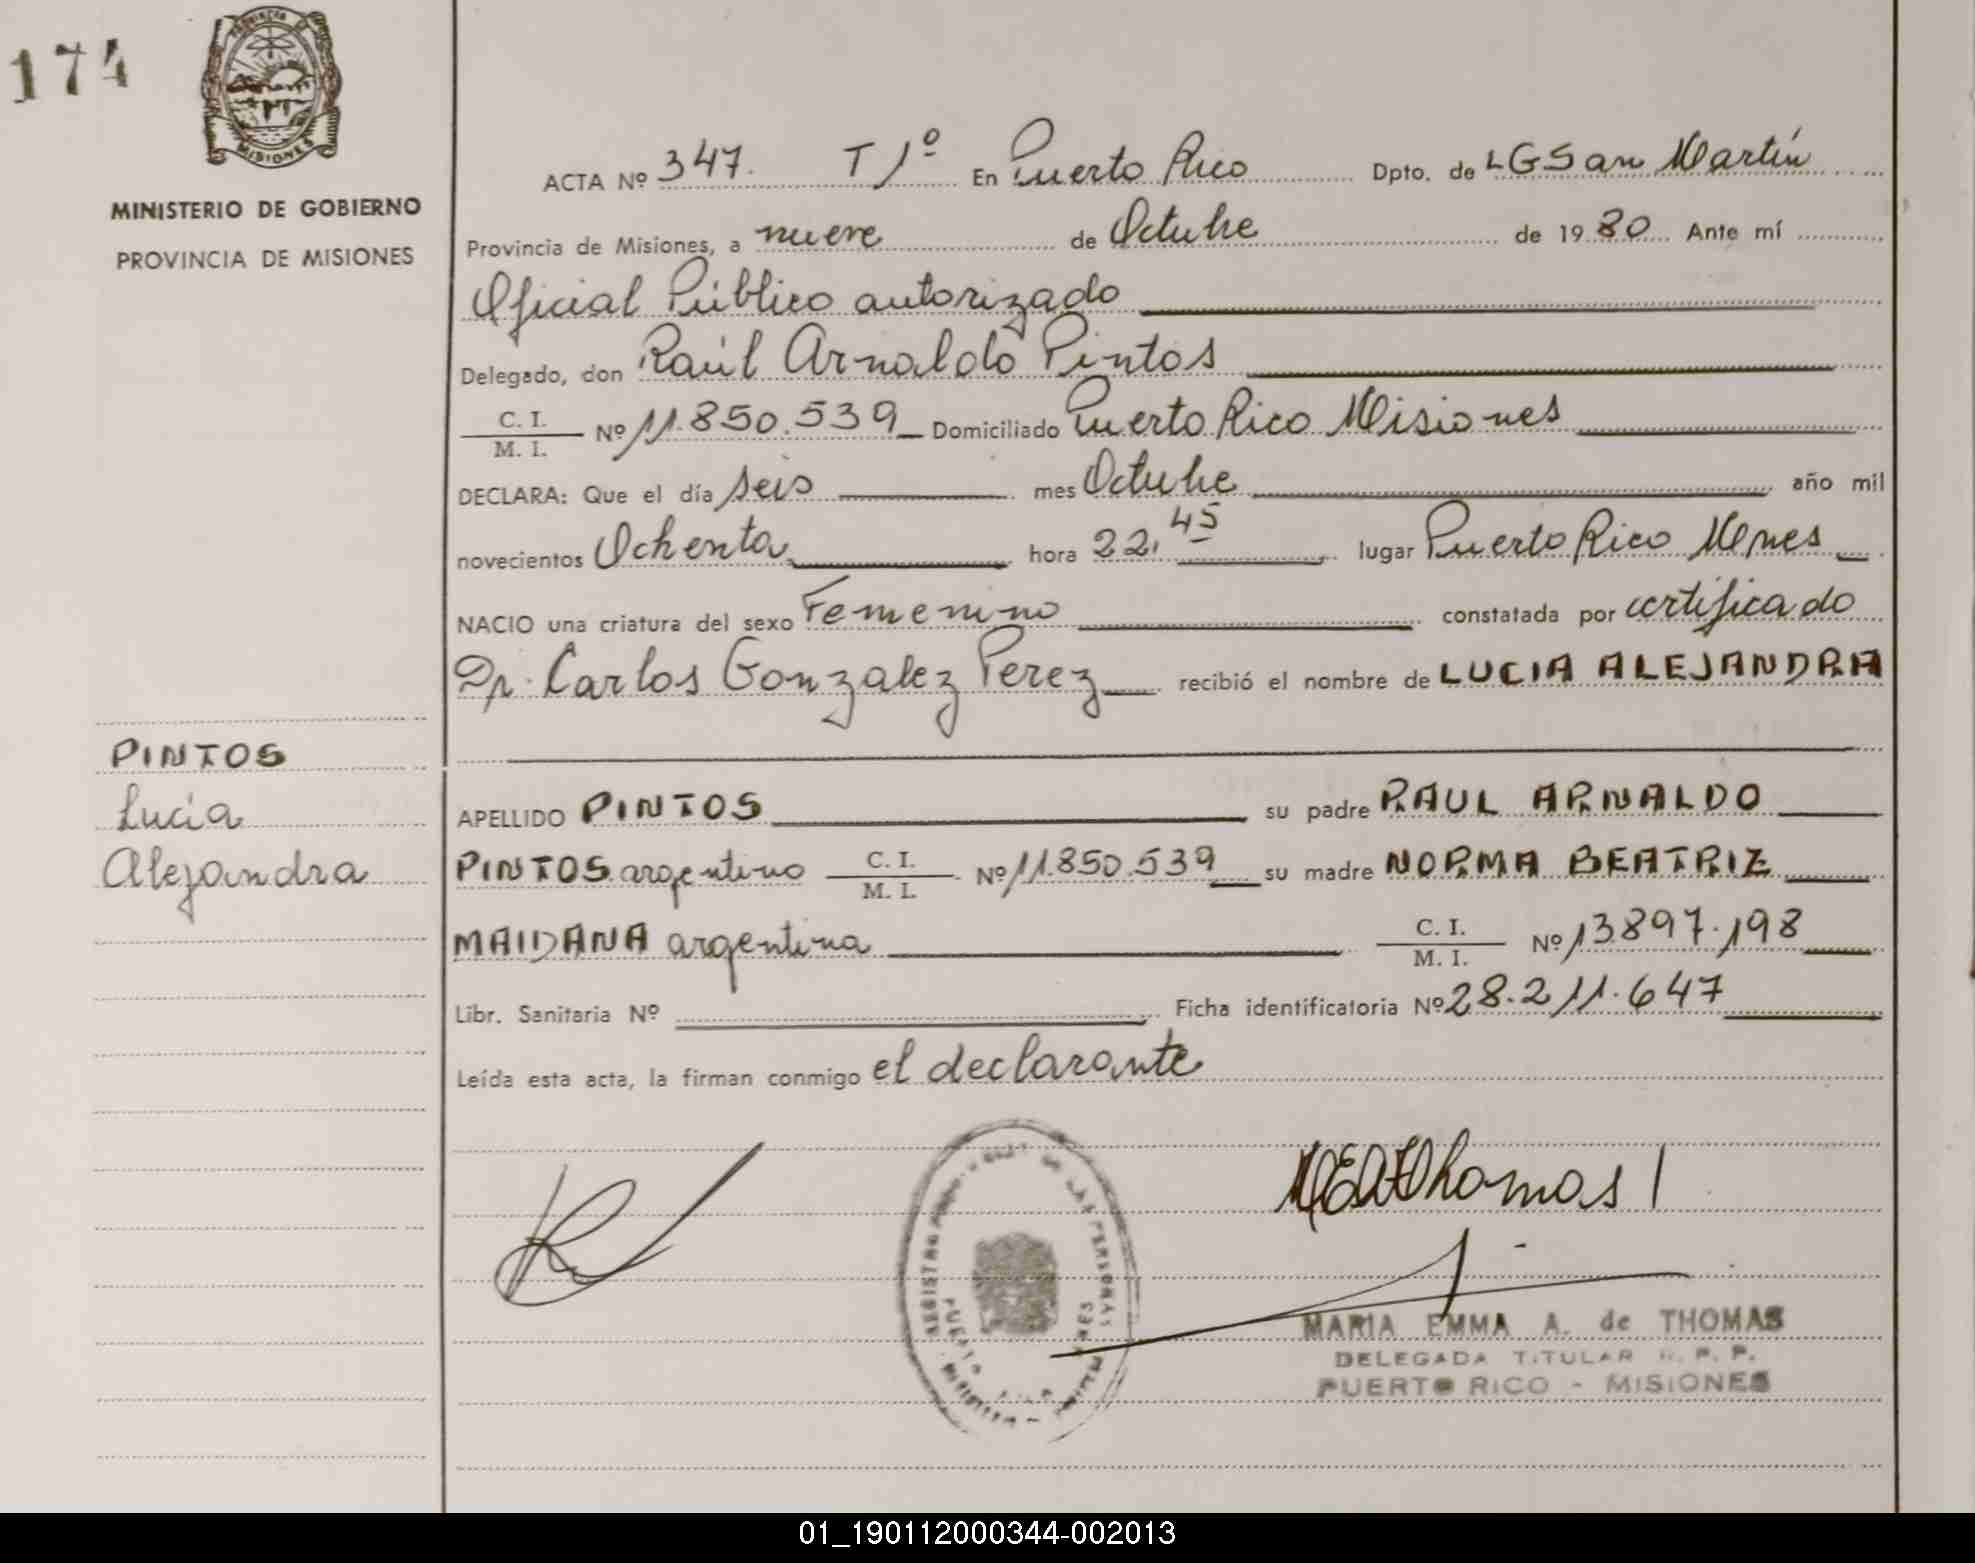 174
PROVINCIA DE
MISIONES
MINISTERIO DE GOBIERNO
PROVINCIA DE MISIONES
PINTOS
Lucía
Alejandra
ACTA Nº 347. T 1º En Puerto Rico Dpto. de LG San Martín
Provincia de Misiones, a nueve de Octubre de 1980 Ante mí
Oficial Público autorizado
Delegado, don Raúl Arnaldo Pintos
C. I. / M. I. Nº 11.850.539 Domiciliado Puerto Rico Misiones
DECLARA: Que el día seis mes Octubre año mil
novecientos Ochenta hora 22,45 lugar Puerto Rico Mnes
NACIO una criatura del sexo Femenino constatada por certificado
Dr. Carlos Gonzalez Perez recibió el nombre de LUCIA ALEJANDRA
APELLIDO PINTOS su padre RAUL ARNALDO
PINTOS argentino C. I. / M. I. Nº 11.850.539 su madre NORMA BEATRIZ
MAIDANA argentina C. I. / M. I. Nº 13.897.198
Libr. Sanitaria Nº Ficha identificatoria Nº 28.211.647
Leída esta acta, la firman conmigo el declarante
REGISTRO DE LAS PERSONAS
PUERTO RICO
MISIONES
MEAThomas
MARIA EMMA A. de THOMAS
DELEGADA TITULAR R. P. P.
PUERTO RICO - MISIONES
01_190112000344-002013